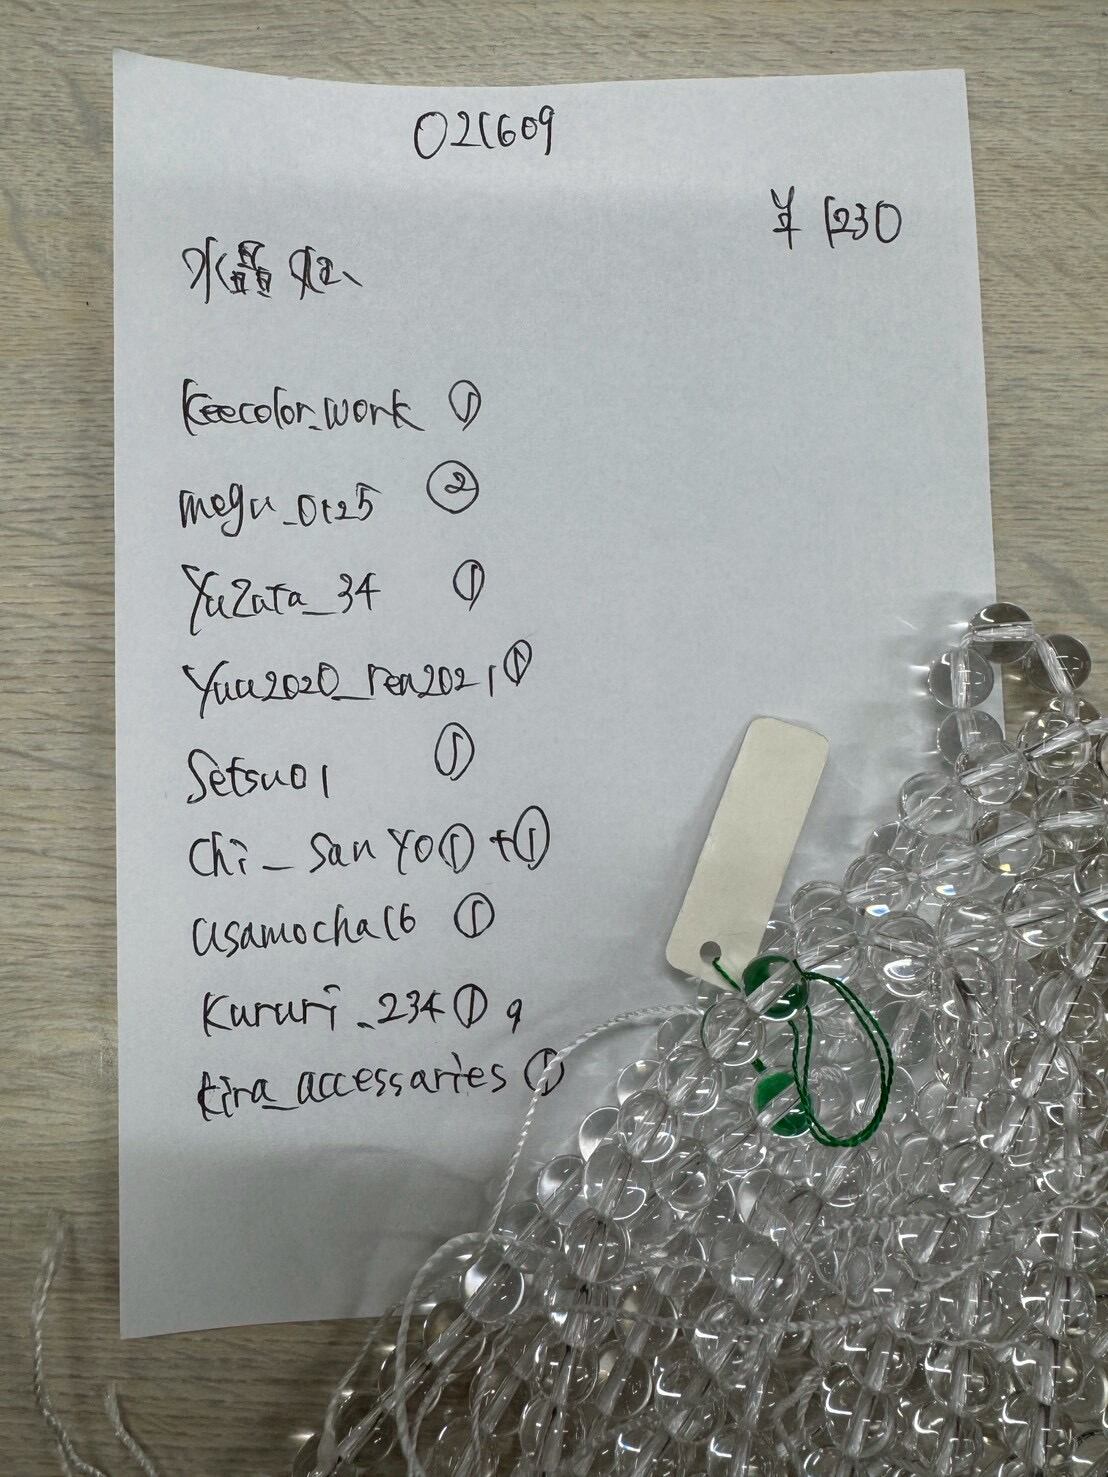 021609
¥ 1230
水晶
keecolor_work ①
megu_0125 ②
Yuzata_34 ①
Yuu2020_ren2021 ①
Setsu01 ①
Chi_sanyo ① + ①
usamocha16 ①
Kururi_234 ① 9
kira_accessaries ①